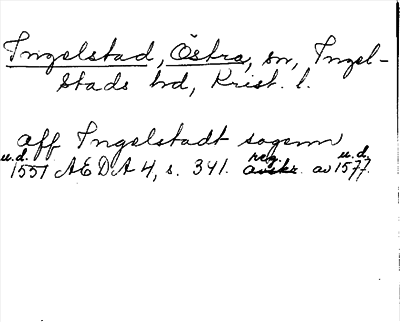 Ingelstad, Östra, sn, Ingel-
stads hd, Krist. l.
aff Ingelstadt sogenn
u.d. 1551 AEDA 4, s. 341. reg. avskr. av u.d. 1577.